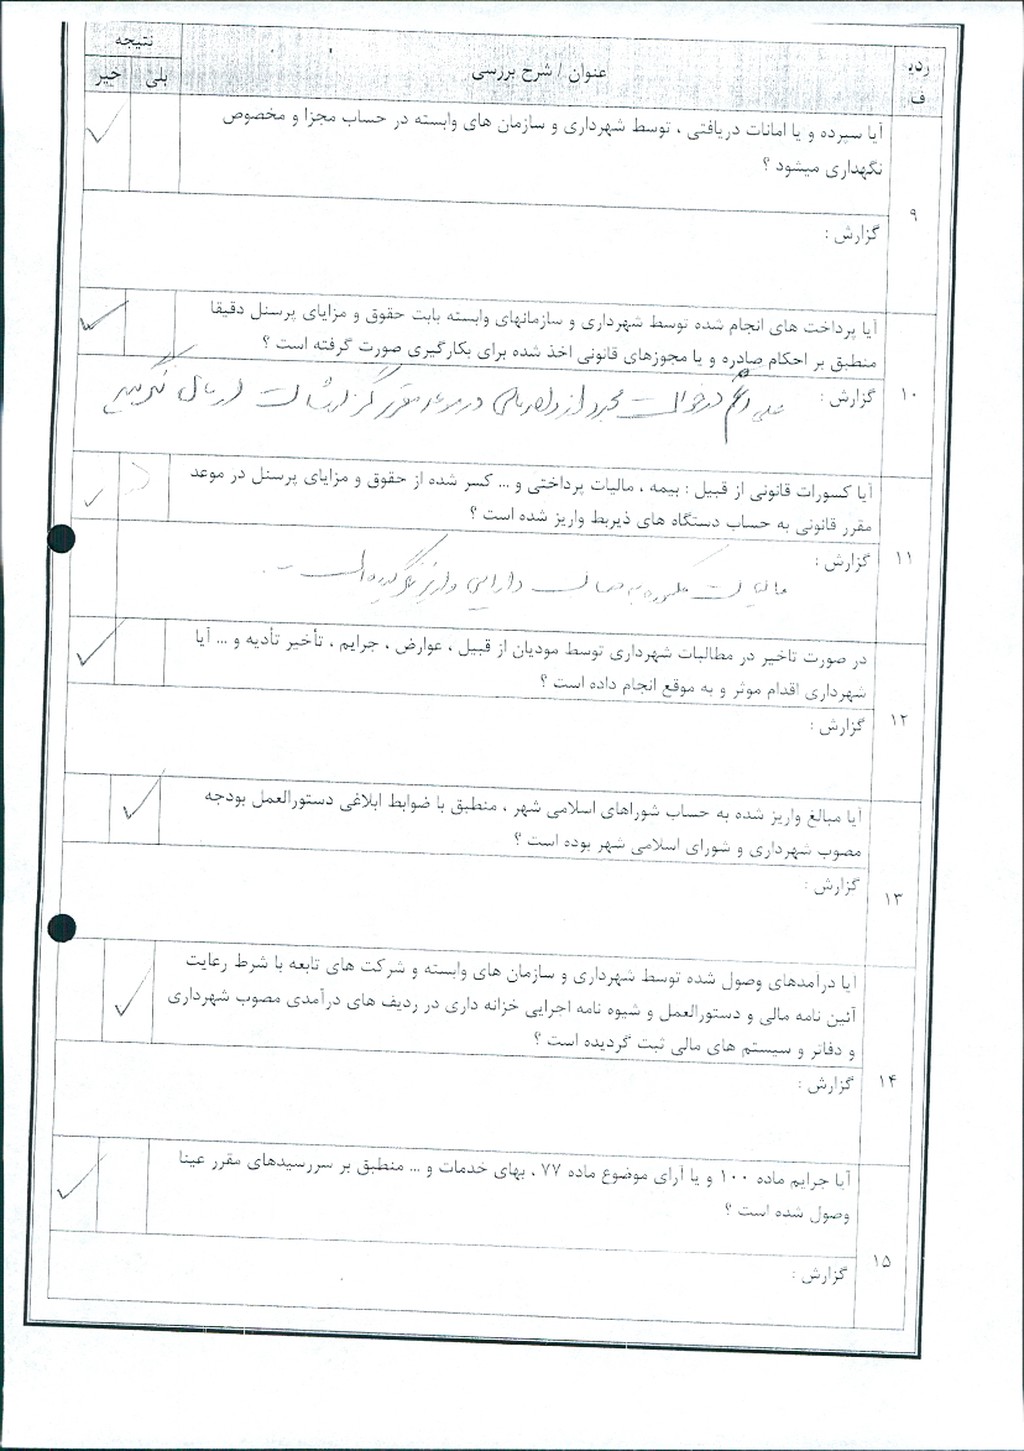 ردیف
عنوان / شرح بررسی
نتیجه
بلی
خیر
آیا سپرده و یا امانات دریافتی ، توسط شهرداری و سازمان های وابسته در حساب مجزا و مخصوص
نگهداری میشود ؟
۹
گزارش :
آیا پرداخت های انجام شده توسط شهرداری و سازمانهای وابسته بابت حقوق و مزایای پرسنل دقیقا
منطبق بر احکام صادره و یا مجوزهای قانونی اخذ شده برای بکارگیری صورت گرفته است ؟
۱۰
گزارش : علی رغم درخواست مجدد از در موعد مقرر گزارشات ارسال نگردید
آیا کسورات قانونی از قبیل : بیمه ، مالیات پرداختی و ... کسر شده از حقوق و مزایای پرسنل در موعد
مقرر قانونی به حساب دستگاه های ذیربط واریز شده است ؟
۱۱
گزارش :
مالیات مکسوره به حساب دارایی واریز نگردیده است .
در صورت تاخیر در مطالبات شهرداری توسط مودیان از قبیل ، عوارض ، جرایم ، تأخیر تأدیه و ... آیا
شهرداری اقدام موثر و به موقع انجام داده است ؟
۱۲
گزارش :
آیا مبالغ واریز شده به حساب شوراهای اسلامی شهر ، منطبق با ضوابط ابلاغی دستورالعمل بودجه
مصوب شهرداری و شورای اسلامی شهر بوده است ؟
۱۳
گزارش :
آیا درآمدهای وصول شده توسط شهرداری و سازمان های وابسته و شرکت های تابعه با شرط رعایت
آئین نامه مالی و دستورالعمل و شیوه نامه اجرایی خزانه داری در ردیف های درآمدی مصوب شهرداری
و دفاتر و سیستم های مالی ثبت گردیده است ؟
۱۴
گزارش :
آیا جرایم ماده ۱۰۰ و یا آرای موضوع ماده ۷۷ ، بهای خدمات و ... منطبق بر سررسیدهای مقرر عینا
وصول شده است ؟
۱۵
گزارش :